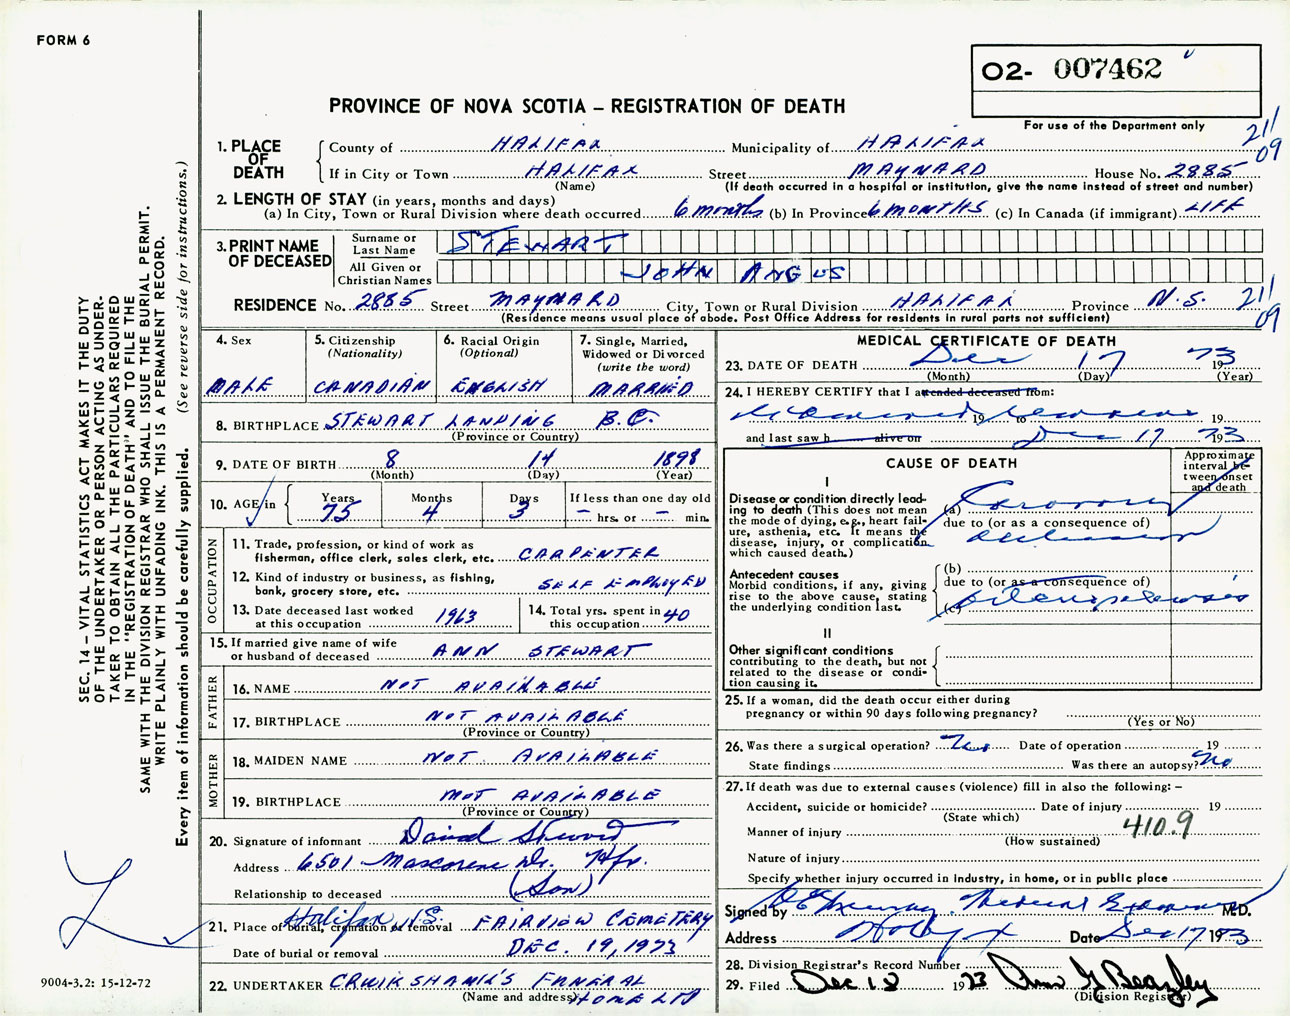 FORM 6
O2- 007462
PROVINCE OF NOVA SCOTIA – REGISTRATION OF DEATH
For use of the Department only
211
09
1. PLACE OF DEATH
County of HALIFAX Municipality of HALIFAX
If in City or Town HALIFAX Street MAYNARD House No. 2885
(Name) (If death occurred in a hospital or institution, give the name instead of street and number)
2. LENGTH OF STAY (in years, months and days)
(a) In City, Town or Rural Division where death occurred 6 months (b) In Province 6 MONTHS (c) In Canada (if immigrant) LIFE
3. PRINT NAME OF DECEASED
Surname or Last Name STEWART
All Given or Christian Names JOHN ANGUS
RESIDENCE No. 2885 Street MAYNARD City, Town or Rural Division HALIFAX Province N.S.
211
09
(Residence means usual place of abode. Post Office Address for residents in rural parts not sufficient)
4. Sex
MALE
5. Citizenship (Nationality)
CANADIAN
6. Racial Origin (Optional)
ENGLISH
7. Single, Married, Widowed or Divorced (write the word)
MARRIED
8. BIRTHPLACE STEWART LANDING B.C.
(Province or Country)
9. DATE OF BIRTH 8 14 1898
(Month) (Day) (Year)
10. AGE in Years 75 Months 4 Days 3
If less than one day old
– hrs. or – min.
OCCUPATION
11. Trade, profession, or kind of work as fisherman, office clerk, sales clerk, etc. CARPENTER
12. Kind of industry or business, as fishing, bank, grocery store, etc. SELF EMPLOYED
13. Date deceased last worked at this occupation 1963
14. Total yrs. spent in this occupation 40
15. If married give name of wife or husband of deceased ANN STEWART
FATHER
16. NAME NOT AVAILABLE
17. BIRTHPLACE NOT AVAILABLE
(Province or Country)
MOTHER
18. MAIDEN NAME NOT AVAILABLE
19. BIRTHPLACE NOT AVAILABLE
(Province or Country)
20. Signature of informant David Stewart
Address 6501 Mascorene Dr. Hfx.
Relationship to deceased (Son)
21. Place of burial, cremation or removal Halifax N.S. FAIRVIEW CEMETERY
Date of burial or removal DEC. 19, 1973
22. UNDERTAKER CRUIKSHANK'S FUNERAL HOME LTD
(Name and address)
MEDICAL CERTIFICATE OF DEATH
23. DATE OF DEATH Dec 17 1973
(Month) (Day) (Year)
24. I HEREBY CERTIFY that I attended deceased from:
19 to 19
and last saw h alive on Dec 17 1973
CAUSE OF DEATH
Approximate interval between onset and death
I
Disease or condition directly leading to death (This does not mean the mode of dying, e.g., heart failure, asthenia, etc. It means the disease, injury, or complication which caused death.)
(a) Coronary
due to (or as a consequence of)
Antecedent causes
Morbid conditions, if any, giving rise to the above cause, stating the underlying condition last.
(b)
due to (or as a consequence of)
(c)
II
Other significant conditions contributing to the death, but not related to the disease or condition causing it.
25. If a woman, did the death occur either during pregnancy or within 90 days following pregnancy?
(Yes or No)
26. Was there a surgical operation? No Date of operation 19
State findings Was there an autopsy? No
27. If death was due to external causes (violence) fill in also the following: –
Accident, suicide or homicide? Date of injury 19
(State which)
Manner of injury 410.9
(How sustained)
Nature of injury
Specify whether injury occurred in industry, in home, or in public place
Signed by Medical Examiner M.D.
Address Halifax Date Dec 17 1973
28. Division Registrar's Record Number
29. Filed Dec 18 1973
(Division Registrar)
SEC. 14 – VITAL STATISTICS ACT MAKES IT THE DUTY
OF THE UNDERTAKER OR PERSON ACTING AS UNDER-
TAKER TO OBTAIN ALL THE PARTICULARS REQUIRED
IN THE "REGISTRATION OF DEATH" AND TO FILE THE
SAME WITH THE DIVISION REGISTRAR WHO SHALL ISSUE THE BURIAL PERMIT.
WRITE PLAINLY WITH UNFADING INK. THIS IS A PERMANENT RECORD.
Every item of information should be carefully supplied. (See reverse side for instructions.)
9004-3.2: 15-12-72